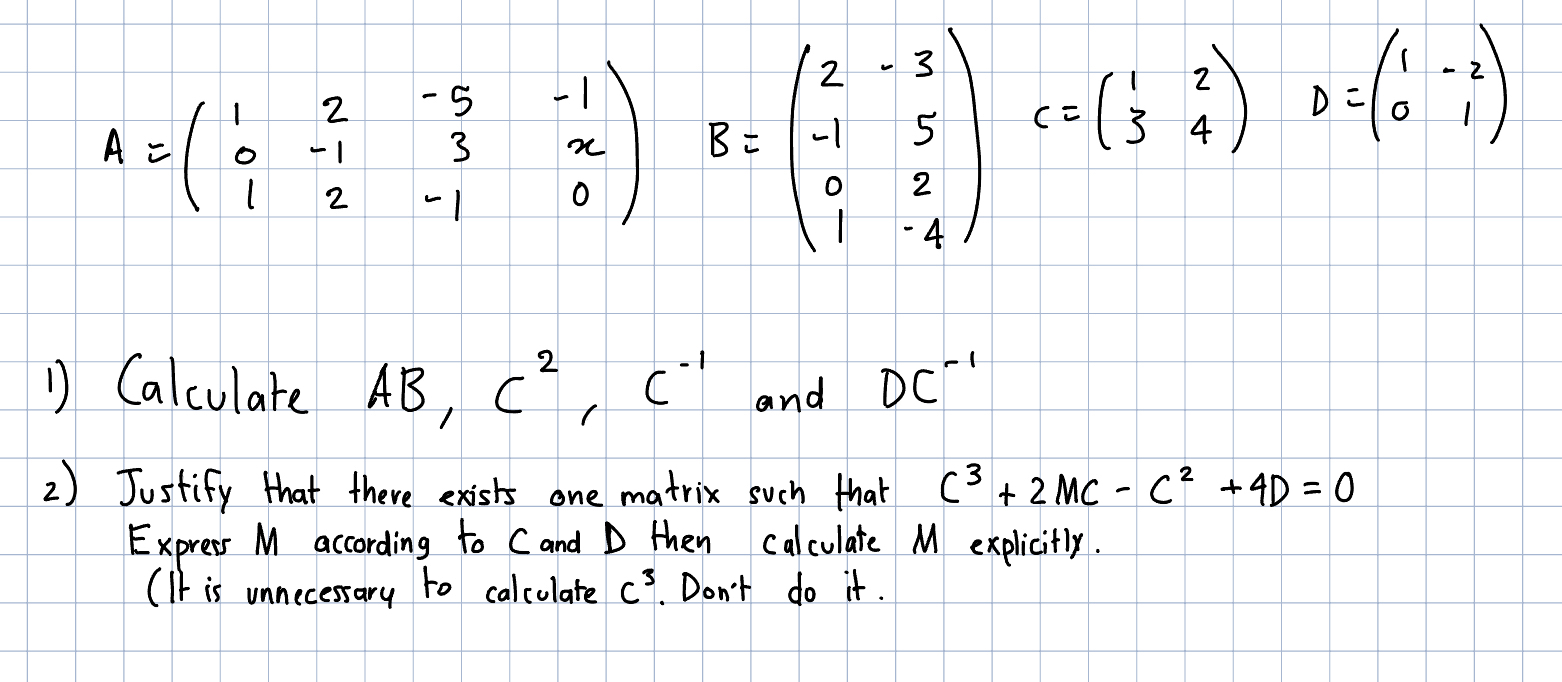 A = ( 1 2 -5 -1 ; 0 -1 3 x ; 1 2 -1 0 ) B = ( 2 -3 ; -1 5 ; 0 2 ; 1 -4 ) C = ( 1 2 ; 3 4 ) D = ( 1 -2 ; 0 1 )
1) Calculate AB, C², C⁻¹ and DC⁻¹
2) Justify that there exists one matrix such that C³ + 2MC - C² + 4D = 0
Express M according to C and D then calculate M explicitly.
(It is unnecessary to calculate C³. Don't do it.